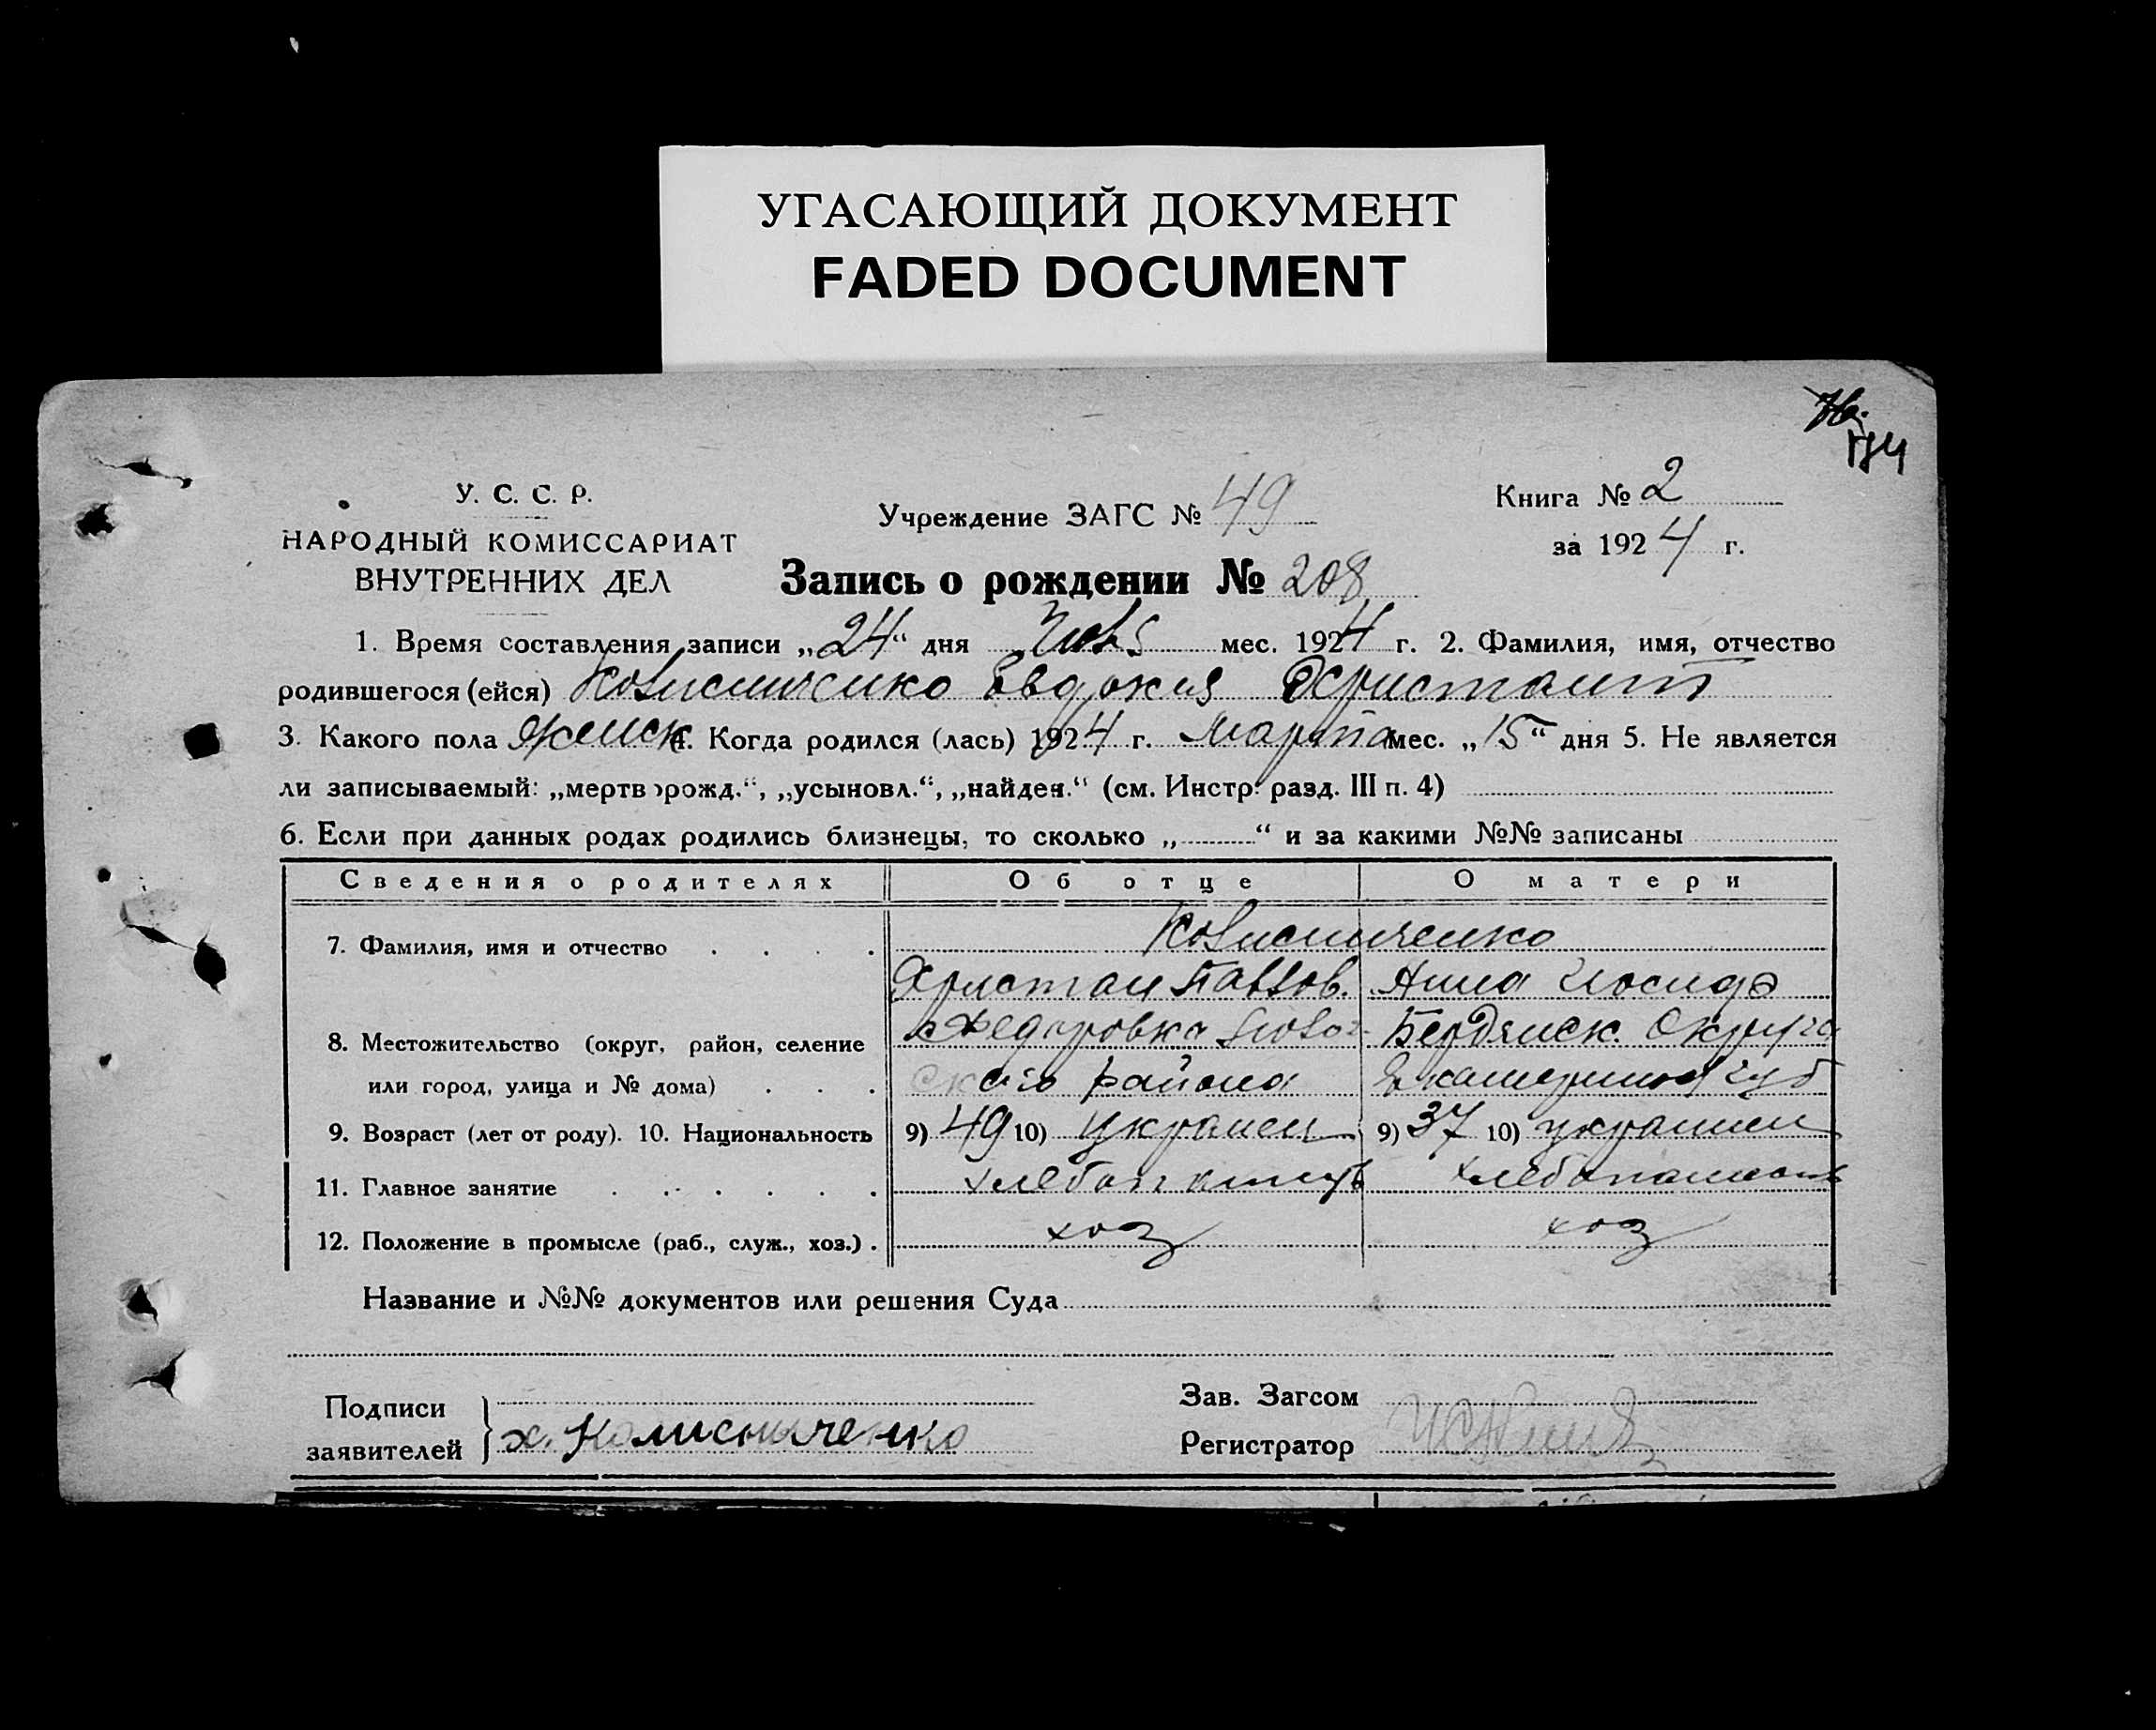 УГАСАЮЩИЙ ДОКУМЕНТ
FADED DOCUMENT
У. С. С. Р.
НАРОДНЫЙ КОМИССАРИАТ
ВНУТРЕННИХ ДЕЛ
Учреждение ЗАГС № 49
Книга № 2
за 1924 г.
Запись о рождении № 208
1. Время составления записи „24“ дня мес. 1924 г. 2. Фамилия, имя, отчество
родившегося (ейся) Колисниченко Евдокия
3. Какого пола женск 4. Когда родился (лась) 1924 г. Марта мес. „15“ дня 5. Не является
ли записываемый: „мертворожд.“, „усыновл.“, „найден.“ (см. Инстр. разд. III п. 4)
6. Если при данных родах родились близнецы, то сколько „ “ и за какими №№ записаны
Сведения о родителях Об отце О матери
7. Фамилия, имя и отчество Колисниченко
Христан Павлов. Анна
8. Местожительство (округ, район, селение Бердянск. Округа
или город, улица и № дома) ского района
9. Возраст (лет от роду). 10. Национальность 9) 49 10) украинец 9) 37 10) украинец
11. Главное занятие хлебопашец
12. Положение в промысле (раб., служ., хоз.) хоз хоз
Название и №№ документов или решения Суда
Подписи
заявителей х. Колисниченко
Зав. Загсом
Регистратор